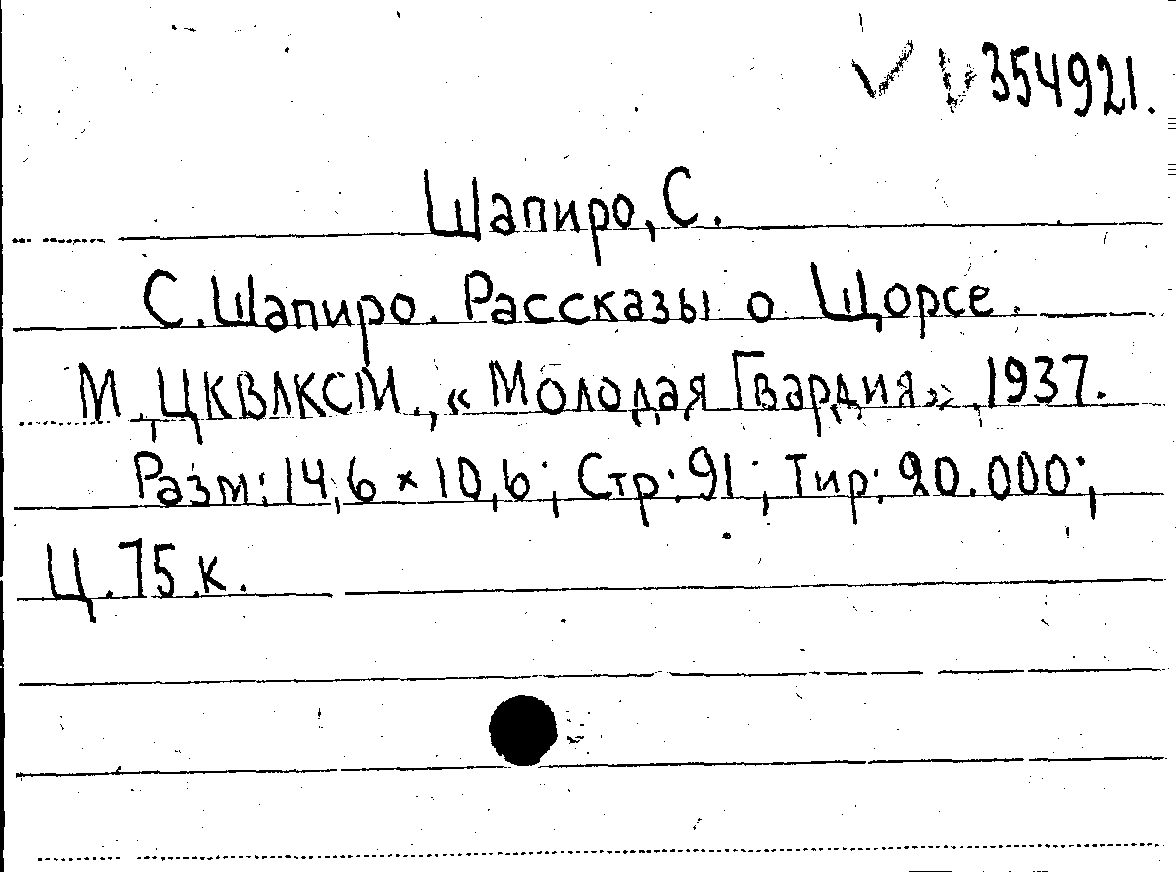 354921.
Шапиро, С.
С. Шапиро. Рассказы о Щорсе.
М., ЦКВЛКСМ., «Молодая Гвардия», 1937.
Разм: 14,6 × 10,6; Стр: 91; Тир: 20.000;
Ц. 75 к.